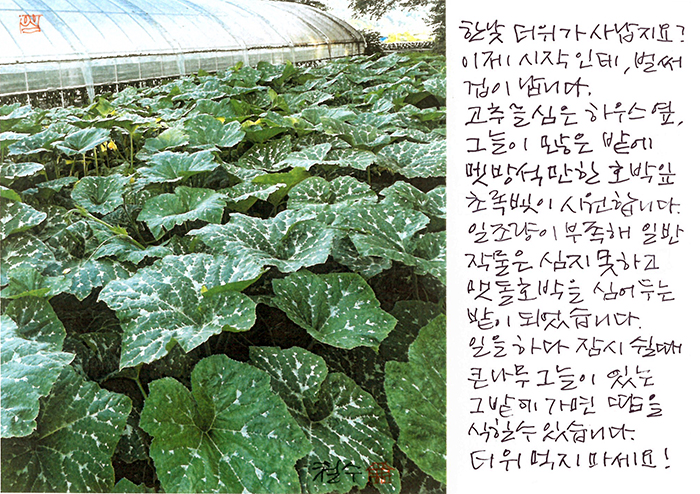 한낮 더위가 사납지요?
이제 시작인데, 벌써
겁이 납니다.
고추를 심은 하우스 옆,
그늘이 모닿은 밭에
멧방석만한 호박잎
초록빛이 시원합니다.
일조량이 부족해 일반
작물은 심지 못하고
맷돌호박을 심어두는
밭이 되었습니다.
일을 하다 잠시 쉴때
큰나무 그늘이 있는
그밭에 가면 땀을
식힐수 있습니다.
더위 먹지 마세요!
철수